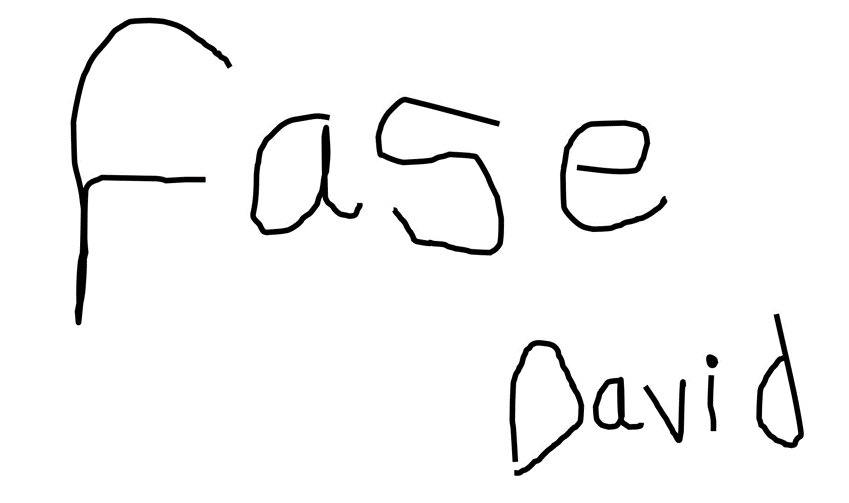 fase
David